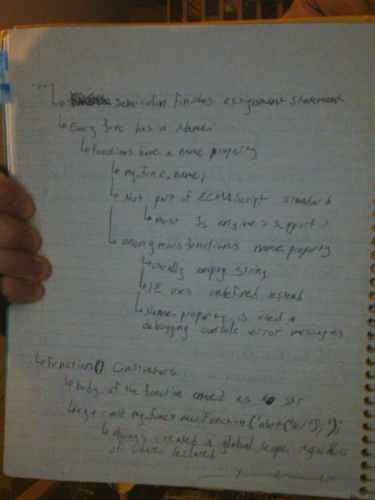 semicolon finishes assignment statement
Every func has a Name
Functions have a name property
myfunc.name;
Not part of ECMAScript standard
most JS engines support it
anonymous functions name property
usually empty string
IE uses undefined instead
Name property is used in
debugging console error messages
Function() Constructors
body of the function as str
e.g. const myfunc = new Function("alert('hi');");
Always created in global scope regardless
of where declared